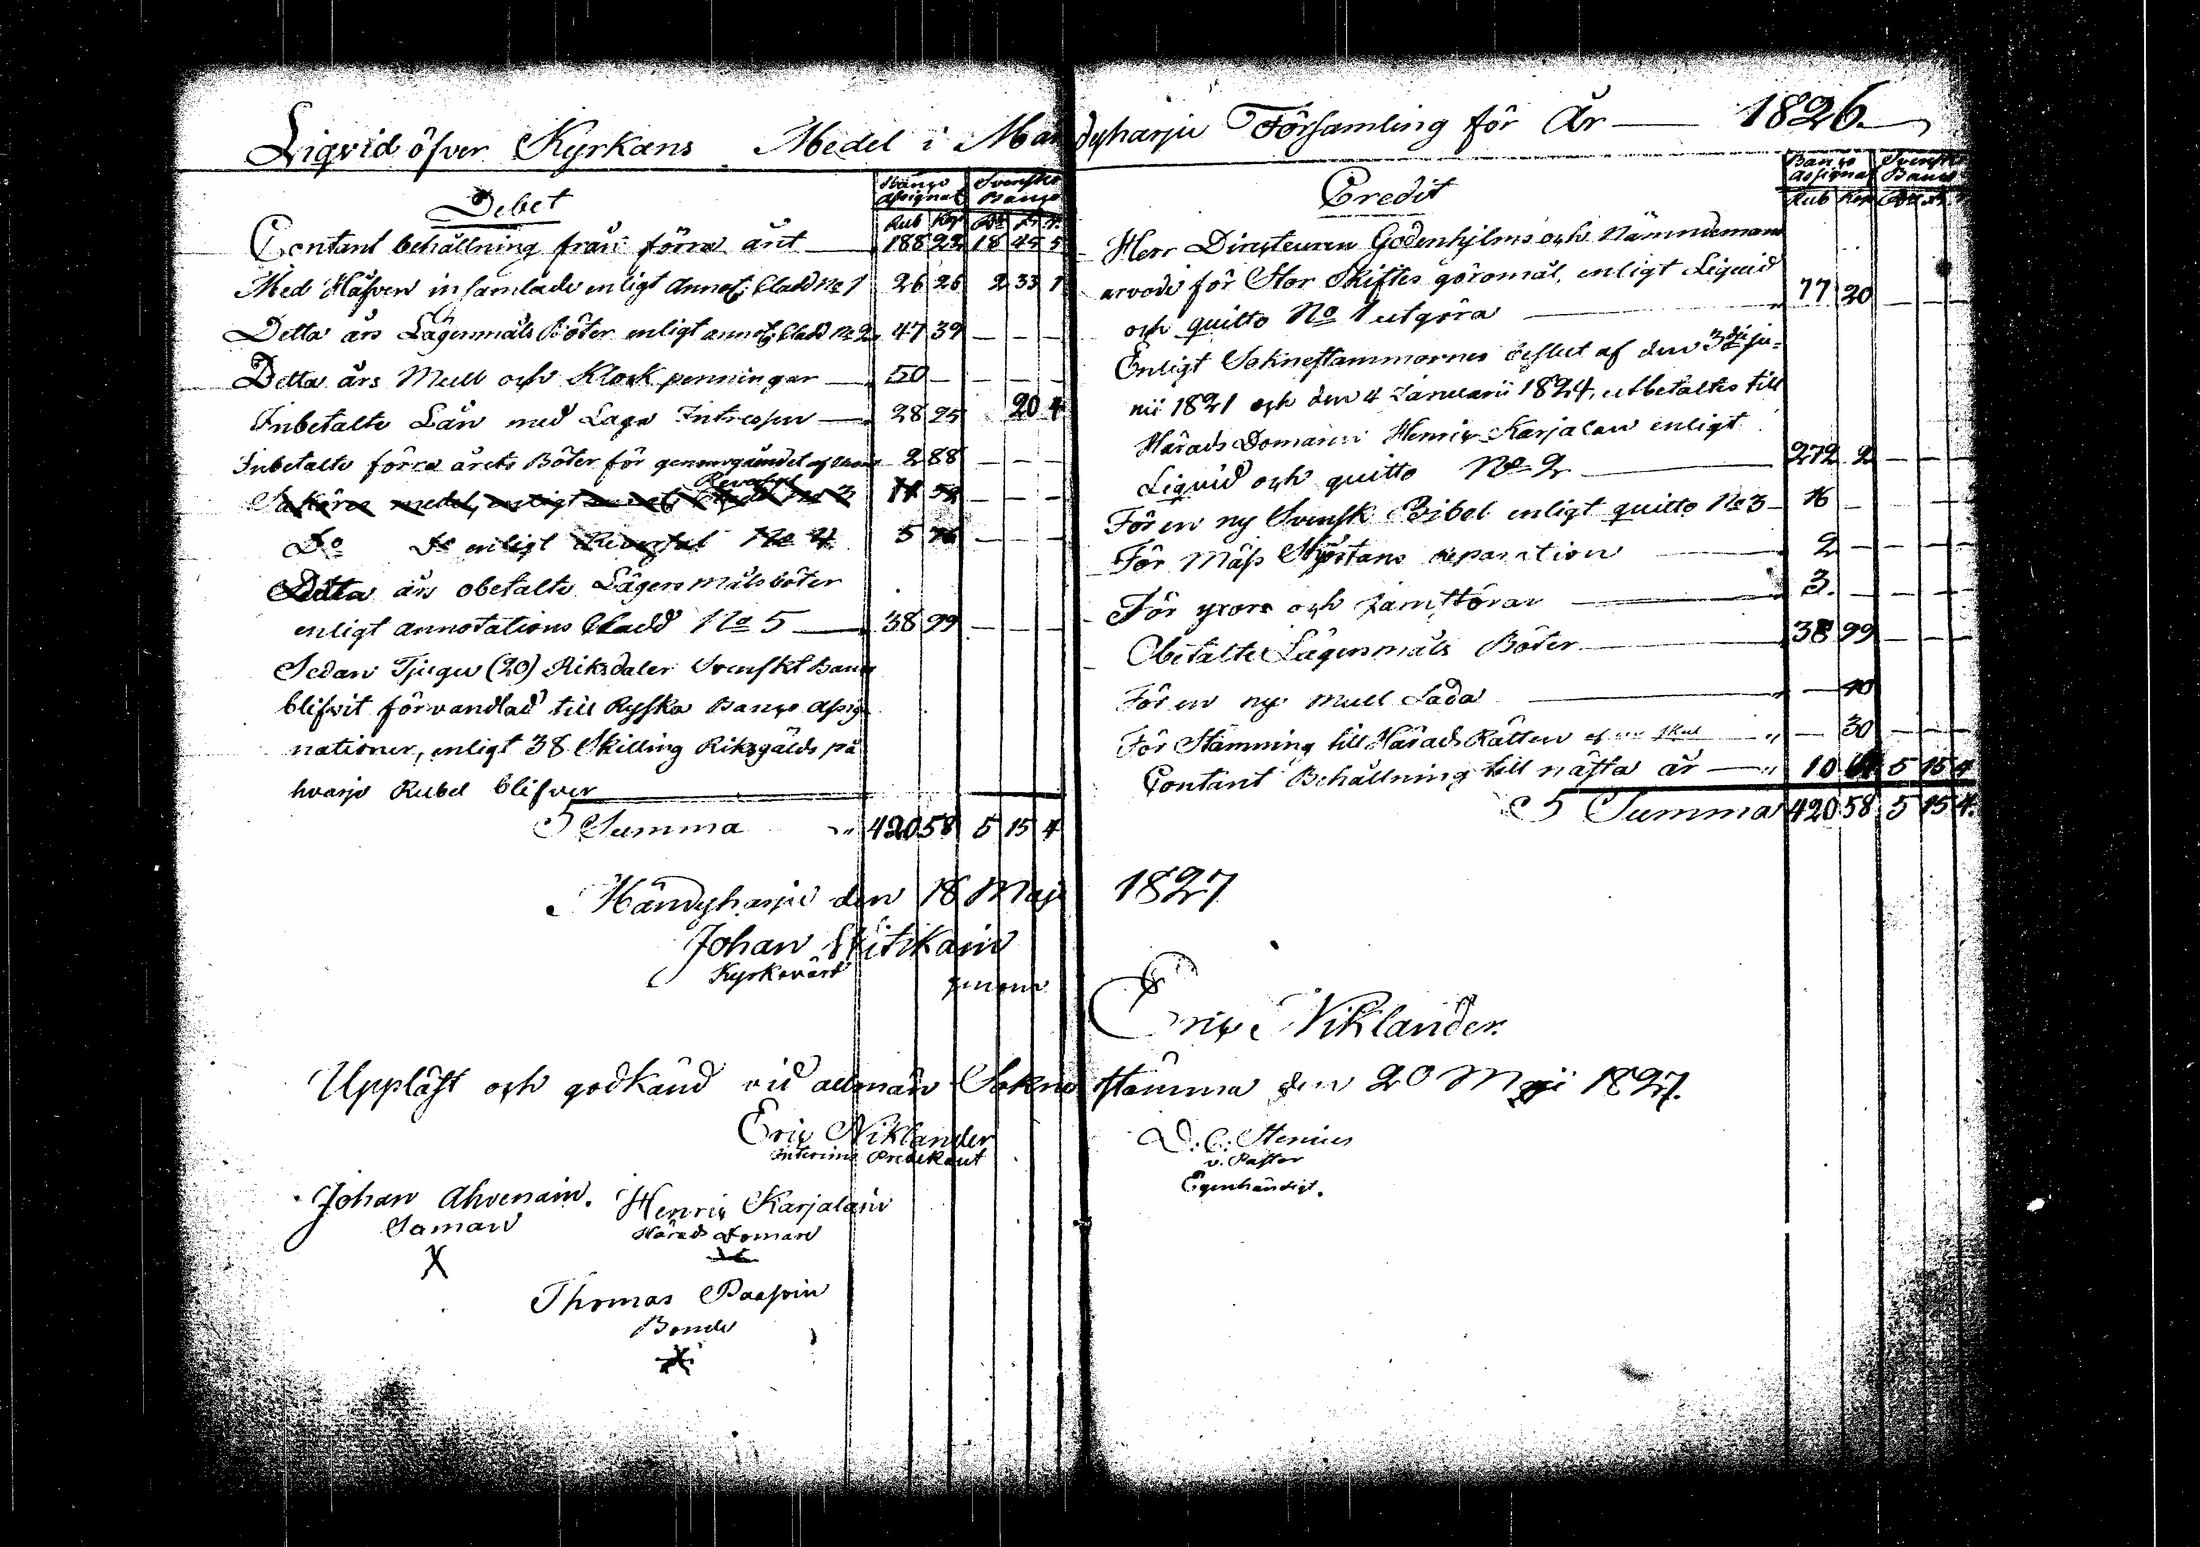 Liqvid öfver Kyrkans Medel i Mändyharju Församling för År 1826.
Debet
Banco Assignat. Svenskt Banco
Rub Kop Rd s. r.
Contant behållning från förra året 188 22 18 45 5
Med Håfven insamlade enligt Annot. bladd No 1 26 26 2 33 1
Detta års Lägersmåls Böter enligt annot. bladd No 2 47 39 — — —
Detta års Mull och Klock penningar 50 — — — —
Inbetalte Lån med Laga Intressen 28 25 20 4
Inbetalte förra årets Böter för 2 88 — — —
Sakören medel, enligt Reversal No 3
Do Do enligt Reversal No 4 5
Detta års obetalte Lägersmålsböter
enligt annotations bladd No 5 38 99 — — —
Sedan Tjugu (20) Riksdaler Svenskt Banco
blifvit förvandlad till Ryska Banco Assig-
nationer, enligt 38 Skilling Riksgälds på
hvarje Rubel blifver
Summa 420 58 5 15 4
Credit
Banco Assignat. Svenskt Banco
Rub Kop Rd s. r.
Herr Directeuren Godenhjelms och Nämndemans
arvode för Stor Skiftes göromål, enligt Liqvid
och quitto No 1 utgöra 77 20 — — —
Enligt Soknestämmornes beslut af den 3die ju-
nii 1821 och den 4 Januarii 1824, utbetaltes till
Härads Domaren Henric Karjalain enligt
Liqvid och quitto No 2 272 2 — — —
För en ny Svensk Bibel enligt quitto No 3 16 — — — —
För Mäss reparation 2 — — — —
För och 3. — — — —
Obetalte Lägersmåls Böter 38 99 — — —
För en ny Mull Lada — 40
För Stämning till Härads Rätten — 30 — — —
Contant Behållning till nästa år 10 5 15 4
Summa 420 58 5 15 4.
Mändyharju den 18 Maji 1827
Johan
Kyrkovärd
genom
Eric Niklander.
Uppläst och godkänd vid allmän Sokne stämma den 20 Maji 1827.
Eric Niklander
Interims Predikant
D. C. Stenius
v. Pastor
Egenhändigt.
Johan Ahvenain. Henric Karjalain
Härads Domare
X
Thomas Paasoin
Bonde